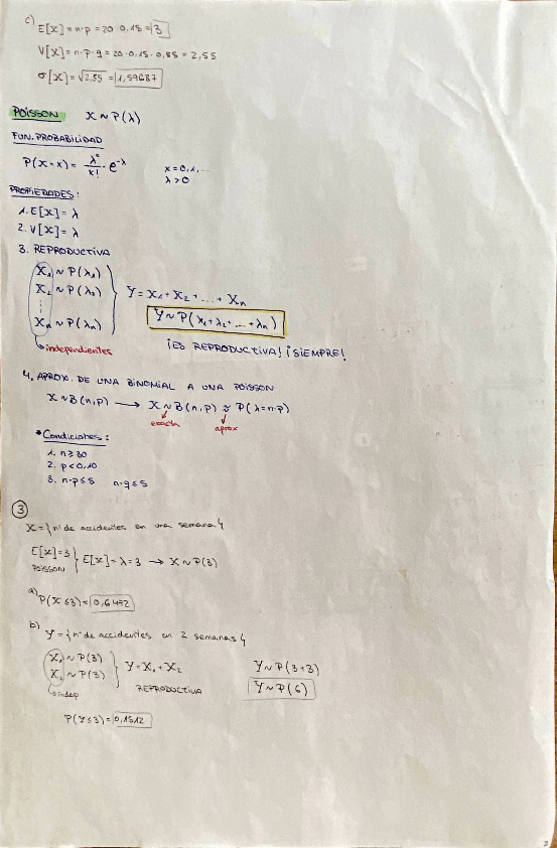 c) E[x] = n·p = 20·0,15 = 3
V[x] = n·p·q = 20·0,15·0,85 = 2,55
σ[x] = √2,55 = 1,59687
POISSON X ~ P(λ)
FUN. PROBABILIDAD
P(X=x) = λˣ/x! · e^-λ x=0,1,...
λ>0
PROPIEDADES:
1. E[x] = λ
2. V[x] = λ
3. REPRODUCTIVA
X₁ ~ P(λ₁)
X₂ ~ P(λ₂)
⋮
Xn ~ P(λn)
Y = X₁+X₂+...+Xn
Y ~ P(λ₁+λ₂+...+λn)
independientes
¡ES REPRODUCTIVA! ¡SIEMPRE!
4. APROX. DE UNA BINOMIAL A UNA POISSON
X ~ B(n,p) → X ~ B(n,p) ≈ P(λ=n·p)
exacta aprox
* Condiciones:
1. n≥30
2. p<0,10
3. n·p≤5 n·q≤5
③
X = {nº de accidentes en una semana}
E[x]=3
POISSON
} E[x] = λ = 3 → X ~ P(3)
a) P(X≤3) = 0,6472
b) Y = {nº de accidentes en 2 semanas}
X₁ ~ P(3)
X₂ ~ P(3)
indep
} Y = X₁+X₂
REPRODUCTIVA
Y ~ P(3+3)
Y ~ P(6)
P(Y≤3) = 0,1512